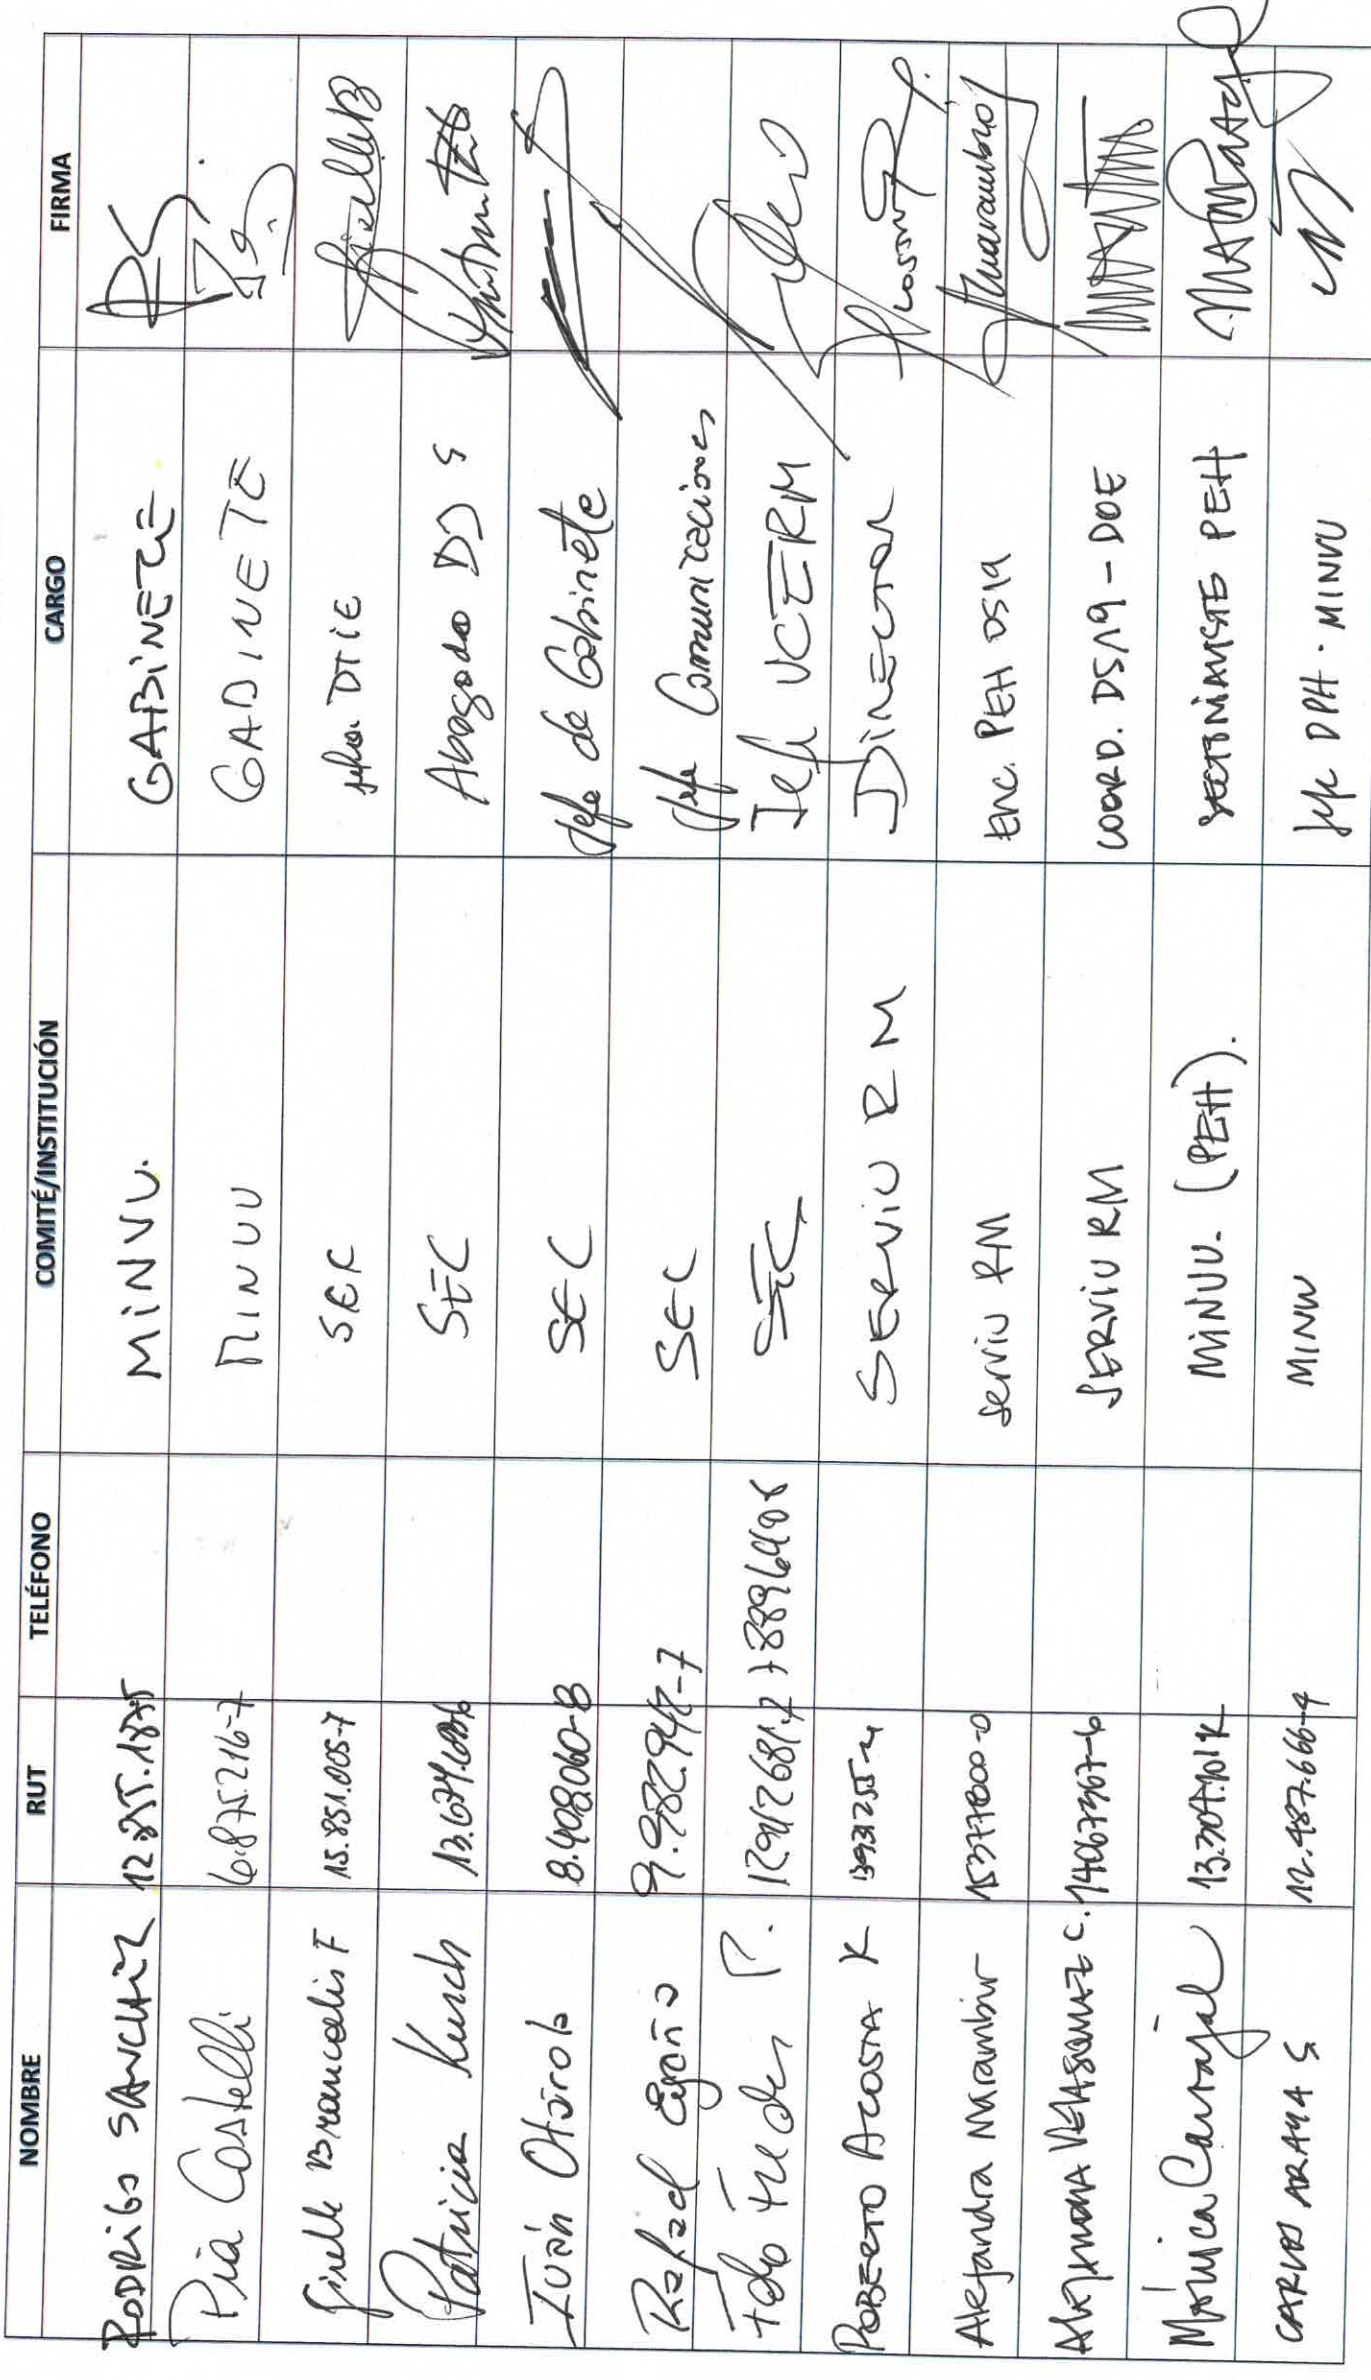 NOMBRE RUT TELÉFONO COMITÉ/INSTITUCIÓN CARGO FIRMA
RODRIGO SANCHEZ MINVU. GABINETE RS
Pia Costelli 6.875.216-7 MINVU GABINETE
Giselle Brancalis F 15.851.005-7 SEC DTIE
Patricia Kusch SEC Abogado DJ
Iván Otárola 8.408.060-8 SEC Jefe de Gabinete
Rafael España 9.982.942-7 SEC Jefe Comunicaciones
P. SEC Jefe UCERM
ROBERTO ACOSTA K SERVIU RM DIRECTOR
Alejandra Marambio 15377000-0 serviu RM Enc. PEH DS19 AMarambio
ALEJANDRA VELASQUEZ C. 14067367-6 SERVIU RM COORD. DS19 - DOE
Mónica Carvajal MINVU. (PEH). PEH
CARLOS ARAYA S 12.487.666-4 MINVU Jefe DPH. MINVU